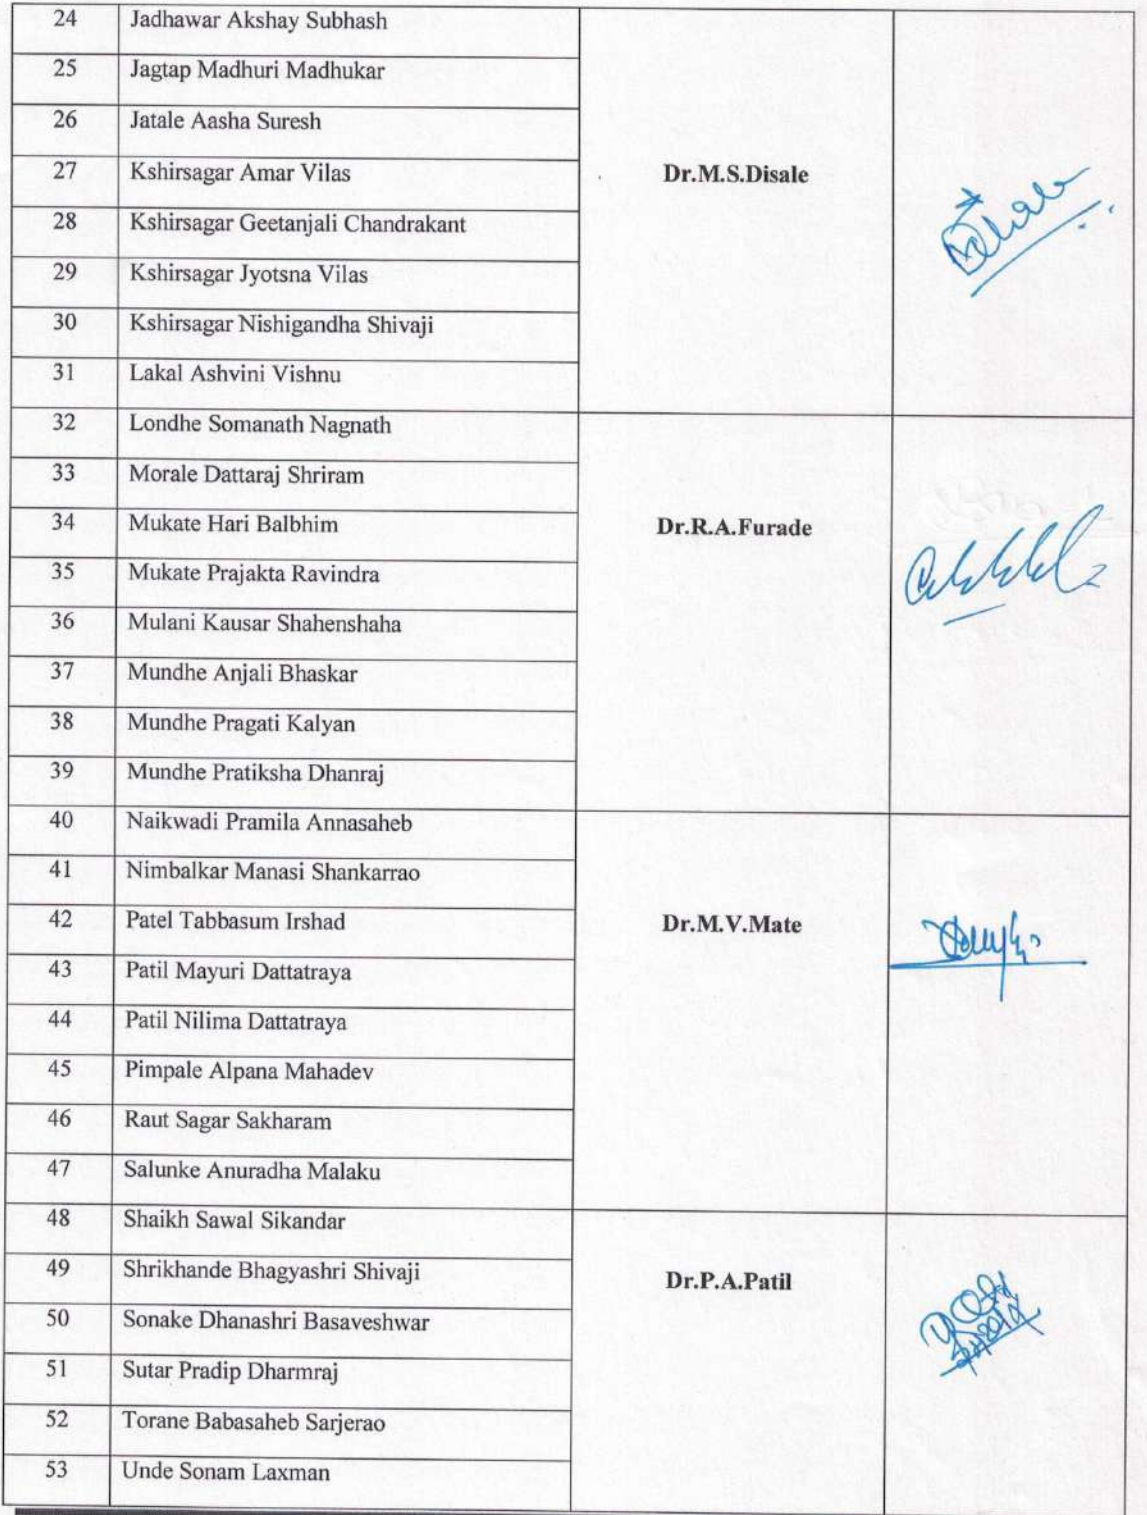 24 Jadhawar Akshay Subhash
25 Jagtap Madhuri Madhukar
26 Jatale Aasha Suresh
27 Kshirsagar Amar Vilas Dr.M.S.Disale
28 Kshirsagar Geetanjali Chandrakant
29 Kshirsagar Jyotsna Vilas
30 Kshirsagar Nishigandha Shivaji
31 Lakal Ashvini Vishnu
32 Londhe Somanath Nagnath
33 Morale Dattaraj Shriram
34 Mukate Hari Balbhim Dr.R.A.Furade
35 Mukate Prajakta Ravindra
36 Mulani Kausar Shahenshaha
37 Mundhe Anjali Bhaskar
38 Mundhe Pragati Kalyan
39 Mundhe Pratiksha Dhanraj
40 Naikwadi Pramila Annasaheb
41 Nimbalkar Manasi Shankarrao
42 Patel Tabbasum Irshad Dr.M.V.Mate
43 Patil Mayuri Dattatraya
44 Patil Nilima Dattatraya
45 Pimpale Alpana Mahadev
46 Raut Sagar Sakharam
47 Salunke Anuradha Malaku
48 Shaikh Sawal Sikandar
49 Shrikhande Bhagyashri Shivaji Dr.P.A.Patil
50 Sonake Dhanashri Basaveshwar
51 Sutar Pradip Dharmraj
52 Torane Babasaheb Sarjerao
53 Unde Sonam Laxman